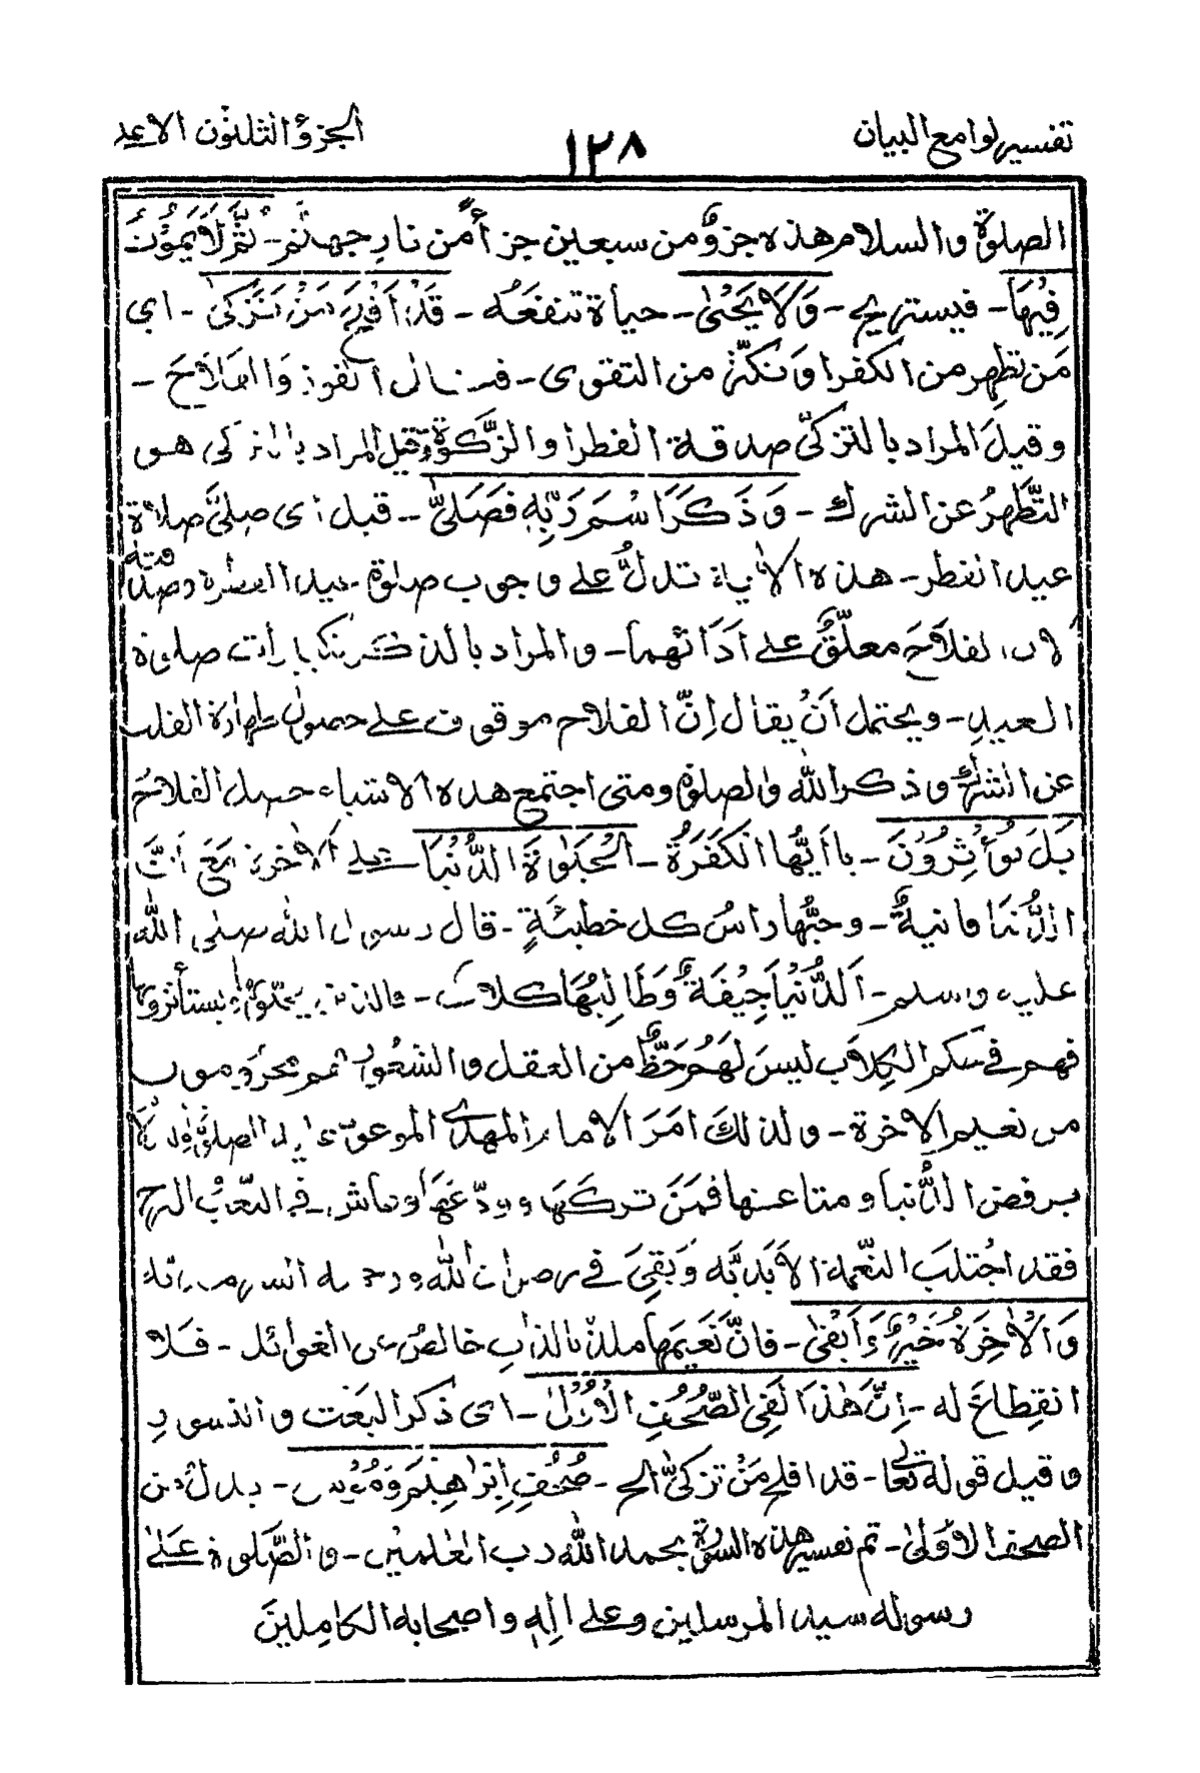 تفسير لوامع البيان ١٢٨ الجزؤ الثلثون الاعلى
الصلوٰة والسلام هذه جزؤٌ من سبعين جزأً من نار جهنّم - ثُمَّ لَا يَمُوْتُ
فِيْهَا - فيستريح - وَلَا يَحْيٰى - حياة تنفعه - قَدْ اَفْلَحَ مَنْ تَزَكّٰى - اى
مَن تطهر من الكفر او تكثّر من التقوى - فينال الفوز والفلاح -
وقيل المراد بالتزكّى صدقة الفطر او الزّكوٰة وقيل المراد بالتزكى هو
التَّطَهرُ عن الشرك - وَذَكَرَ اسْمَ رَبِّهٖ فَصَلّٰى - قيل اى صلّى صلاة
عيد الفطر - هذه الأية تدلُّ على وجوب صلوٰة عيد الفطر وصدقته
لان الفلاحَ معلّقٌ على اَدَائهما - والمراد بالذكر تكبيرات صلوٰة
العيد - ويحتمل اَنْ يقال اِنّ الفلاح موقوف على حصول طهارة القلب
عن الشرك وذكر الله والصلوٰة ومتى اجتمع هذه الاشياء حصل الفلاحُ
بَلْ تُؤْثِرُوْنَ - يا اَيُّها الكَفَرَةُ - الْحَيٰوةَ الدُّنْيَا - على الاٰخرة مَعَ اَنَّ
الدُّنيَا فانيةٌ - وحبُّها راسُ كل خطيئةٍ - قال رسول الله صلى الله
عليه وسلم - اَلدُّنْيَا جِيْفَةٌ وَطَالِبُهَا كلاب - فالذين يحبّونها ويستأثرونها
فهم فى حكم الكِلاَب ليسَ لَهُم حَظٌّ من العقل والشعور ثم محرومون
من نعيم الاٰخرة - ولذلكَ امَرَ الامام المهدى الموعود عليه الصلوٰة
برفض الدُّنيا ومتاعها فمَنْ تركَهَا وودّعَهَا وعاش فى
فقد اجْتلَبَ النّعمة الاَبَديَّه وَبَقِىَ فى رضوان الله ورحمته
وَالْاٰخِرَةُ خَيْرٌ وَّاَبْقٰى - فانّ نَعيمَها ملذ بالذات خالصٌ عن الغوائل - فَلا
انقِطاعَ له - اِنَّ هٰذَا لَفِى الصُّحُفِ الْاُوْلٰى - اى ذكر البَعْث والنشور
وقيل قوله تعالٰى - قد افلح مَنْ تزكّٰى الخ - صُحُفِ اِبْرَاهِيْمَ وَمُوْسٰى - بدل من
الصحف الاُوْلٰى - تم تفسير هذه السورة بحمد الله رب العٰلمين - والصَّلوٰة عَلىٰ
رسوله سيد المرسلين وعلى اٰلِهٖ واصحابه الكامِلينَ